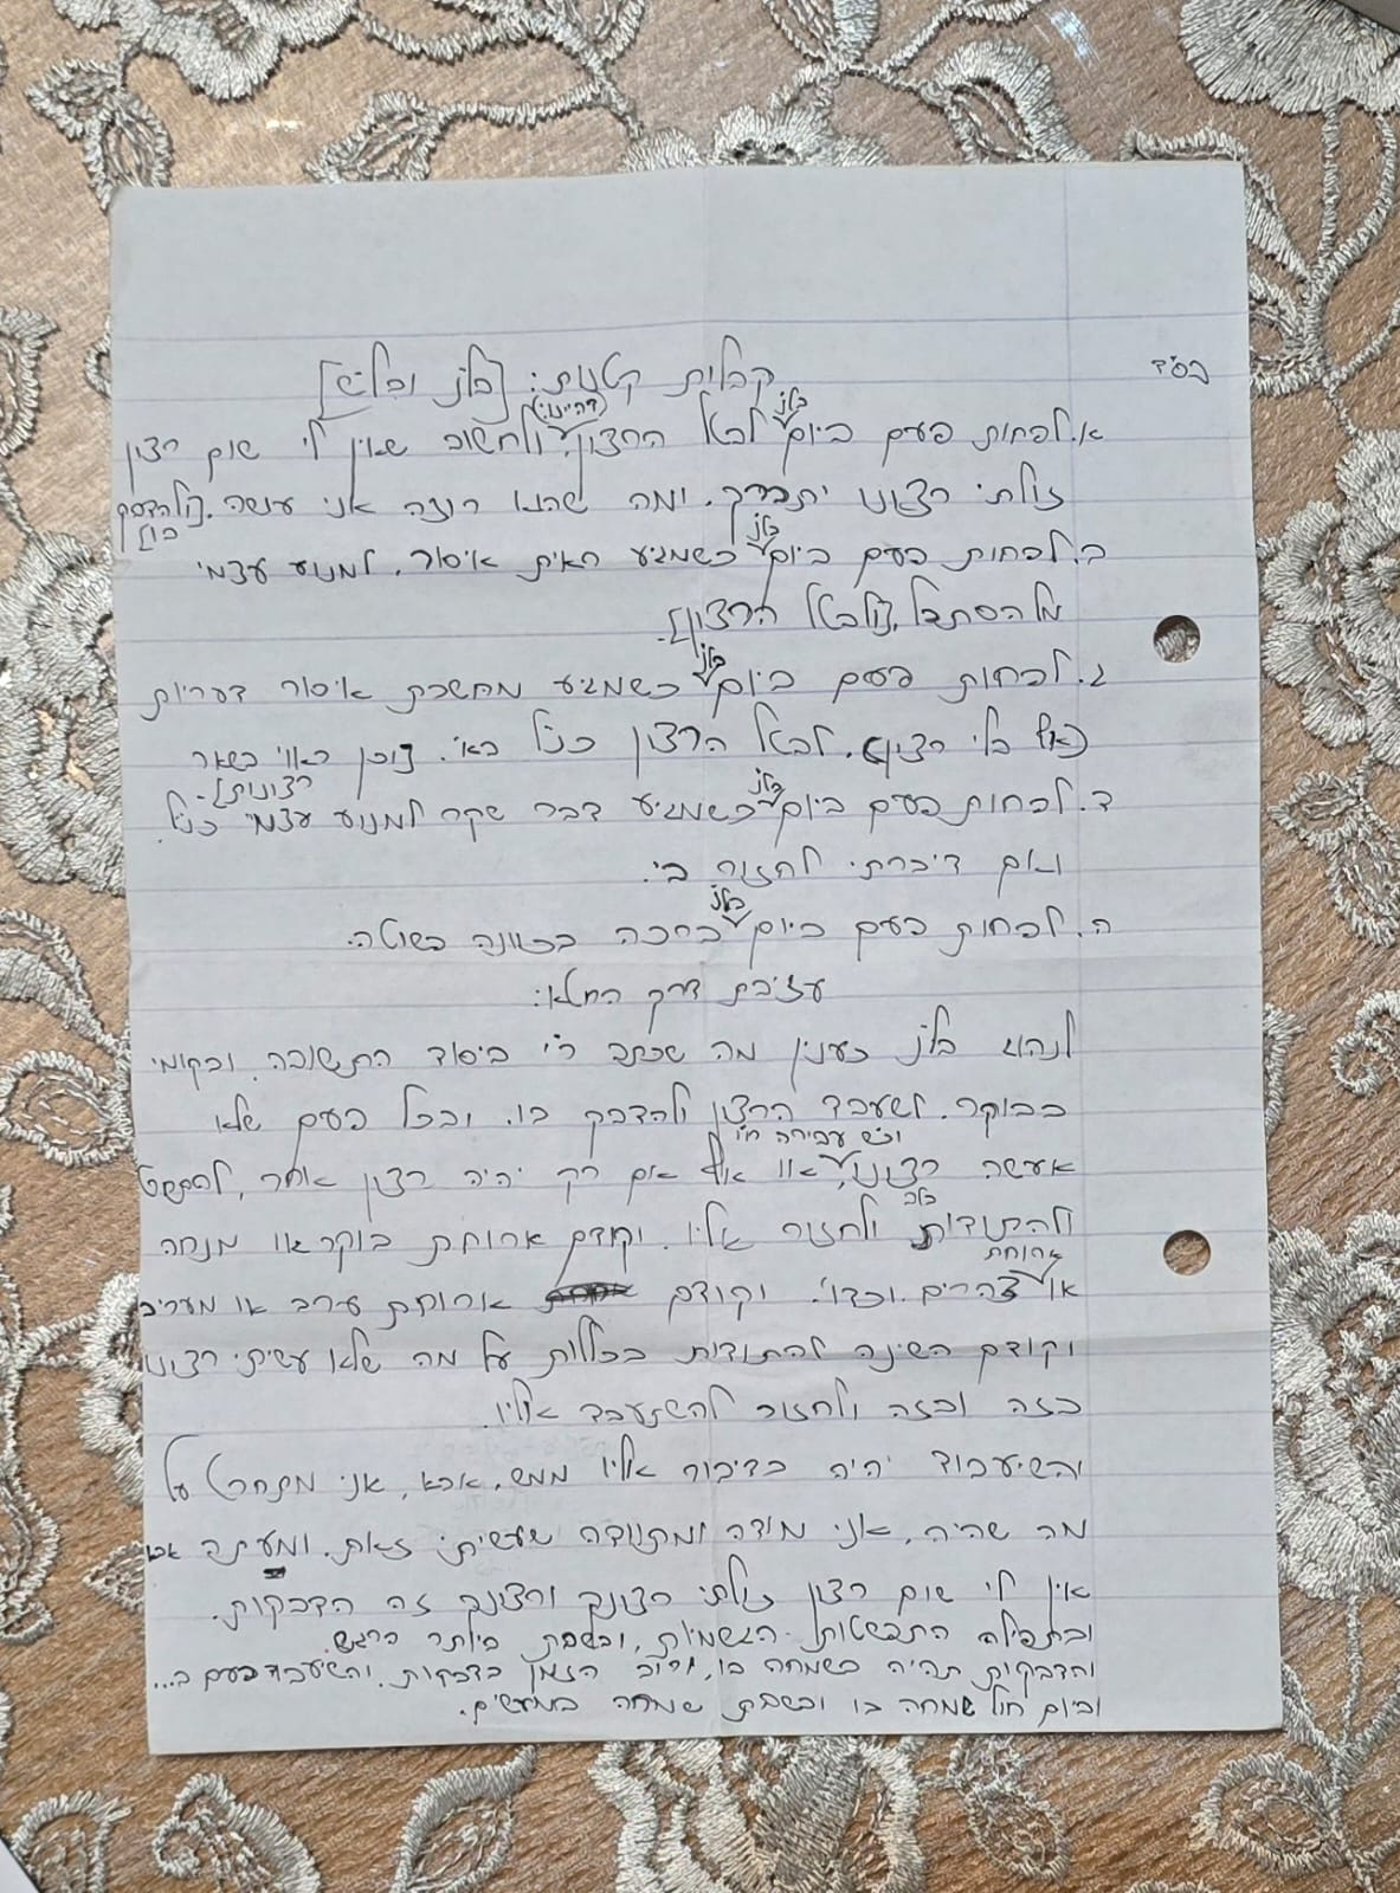 בס"ד
קבלות קטנות: [בל"נ ובל"ש]
א. לפחות פעם ביום בל"נ לבטל הרצון (דהיינו:) ולחשוב שאין לי שום רצון
זולתי רצונו יתברך. ומה שהוא רוצה אני עושה. [ולהדבק בו]
ב. לפחות פעם ביום בל"נ כשמגיע ראית איסור. למנוע עצמי
מלהסתכל. [ולבטל הרצון].
ג. לפחות פעם ביום בל"נ כשמגיע מחשבת איסור דעריות
(אף בלי רצון). לבטל הרצון כנ"ל בא'. [וכן ראוי בשאר רצונות].
ד. לפחות פעם ביום בל"נ כשמגיע דבר שקר למנוע עצמי כנ"ל.
ואם דיברתי לחזור בי.
ה. לפחות פעם ביום בל"נ ברכה בכוונה פשוטה.
עזיבת דרך החטא:
לנהוג בל"נ כענין מה שכתב ר"י ביסוד התשובה. ובקומי
בבוקר. לשעבד הרצון ולהדבק בו. ובכל פעם שלא
אעשה רצונו, וכ"ש עבירה ח"ו או אף אם רק יהיה רצון אחר, להתפשט
ולהתודות בלב ולחזור אליו. וקודם ארוחת בוקר או מנחה
או ארוחת צהרים. וכדו'. וקודם ארוחת ערב או מעריב
וקודם השינה להתודות בכללות על מה שלא עשיתי רצונו
בזה ובזה ולחזור להשתעבד אליו.
והשיעבוד יהיה בדיבור אליו ממש. אבא, אני מתחרט על
מה שהיה. אני מודה ומתוודה שעשיתי זאת. ומעתה אבא
אין לי שום רצון זולתי רצונך ורצונך זה הדבקות.
ובתפילה התפשטות הגשמיות, ובשבת ביותר ברגש.
והדבקות תהיה בשמחה בו, ורוב הזמן בדבקות. והשיעבוד פעם ב...
וביום חול שמחה בו ובשבת שמחה במעשים.